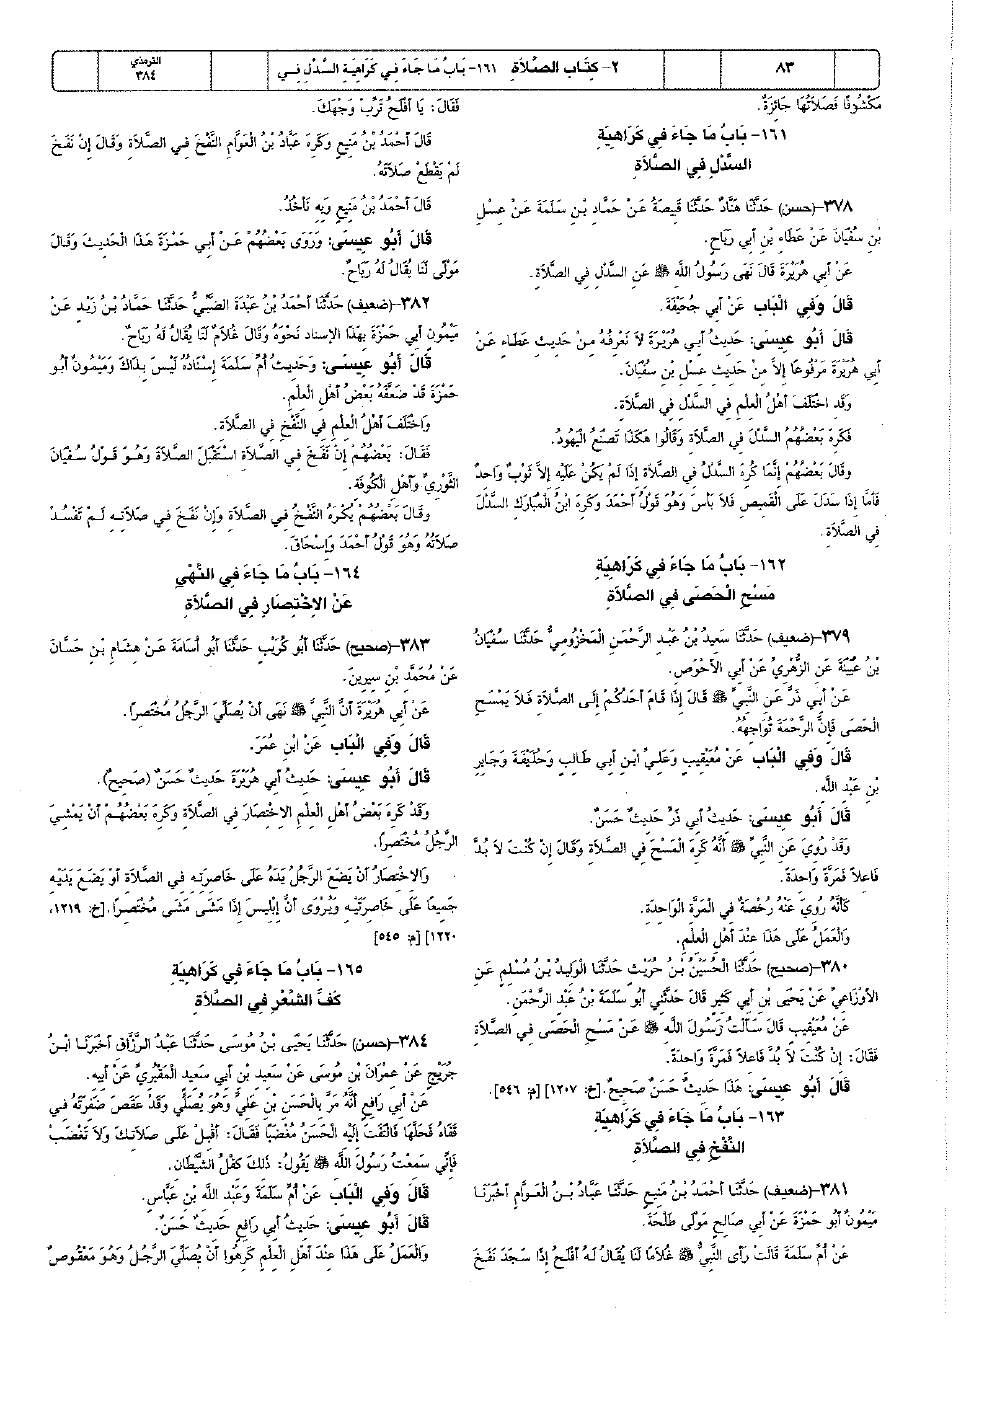 ٨٣
٢- كِتَاب الصَّلاَةِ ١٦١- بَابُ مَا جَاءَ فِي كَرَاهِيَةِ السَّدْلِ فِي
الترمذي
٣٨٤
مَكْشُوفًا فَصَلاَتُهَا جَائِزَةٌ.
١٦١- بَابُ مَا جَاءَ فِي كَرَاهِيَةِ
السَّدْلِ فِي الصَّلاَةِ
٣٧٨-(حسن) حَدَّثَنَا هَنَّادٌ حَدَّثَنَا قَبِيصَةُ عَنْ حَمَّادِ بْنِ سَلَمَةَ عَنْ عِسْلِ
بْنِ سُفْيَانَ عَنْ عَطَاءِ بْنِ أَبِي رَبَاحٍ.
عَنْ أَبِي هُرَيْرَةَ قَالَ نَهَى رَسُولُ اللَّهِ ﷺ عَنِ السَّدْلِ فِي الصَّلاَةِ.
قَالَ وَفِي الْبَاب عَنْ أَبِي جُحَيْفَةَ.
قَالَ أَبُو عِيسَى: حَدِيثُ أَبِي هُرَيْرَةَ لاَ نَعْرِفُهُ مِنْ حَدِيثِ عَطَاءٍ عَنْ
أَبِي هُرَيْرَةَ مَرْفُوعًا إِلاَّ مِنْ حَدِيثِ عِسْلِ بْنِ سُفْيَانَ.
وَقَدِ اخْتَلَفَ أَهْلُ الْعِلْمِ فِي السَّدْلِ فِي الصَّلاَةِ.
فَكَرِهَ بَعْضُهُمُ السَّدْلَ فِي الصَّلاَةِ وَقَالُوا هَكَذَا تَصْنَعُ الْيَهُودُ.
وقَالَ بَعْضُهُمْ إِنَّمَا كُرِهَ السَّدْلُ فِي الصَّلاَةِ إِذَا لَمْ يَكُنْ عَلَيْهِ إِلاَّ ثَوْبٌ وَاحِدٌ
فَأَمَّا إِذَا سَدَلَ عَلَى الْقَمِيصِ فَلاَ بَأْسَ وَهُوَ قَوْلُ أَحْمَدَ وَكَرِهَ ابْنُ الْمُبَارَكِ السَّدْلَ
فِي الصَّلاَةِ.
١٦٢- بَابُ مَا جَاءَ فِي كَرَاهِيَةِ
مَسْحِ الْحَصَى فِي الصَّلاَةِ
٣٧٩-(ضعيف) حَدَّثَنَا سَعِيدُ بْنُ عَبْدِ الرَّحْمَنِ الْمَخْزُومِيُّ حَدَّثَنَا سُفْيَانُ
بْنُ عُيَيْنَةَ عَنِ الزُّهْرِيِّ عَنْ أَبِي الأَحْوَصِ.
عَنْ أَبِي ذَرٍّ عَنِ النَّبِيِّ ﷺ قَالَ إِذَا قَامَ أَحَدُكُمْ إِلَى الصَّلاَةِ فَلاَ يَمْسَحِ
الْحَصَى فَإِنَّ الرَّحْمَةَ تُوَاجِهُهُ.
قَالَ وَفِي الْبَاب عَنْ مُعَيْقِيبٍ وَعَلِيِّ ابْنِ أَبِي طَالِبٍ وَحُذَيْفَةَ وَجَابِرِ
بْنِ عَبْدِ اللَّهِ.
قَالَ أَبُو عِيسَى: حَدِيثُ أَبِي ذَرٍّ حَدِيثٌ حَسَنٌ.
وَقَدْ رُوِيَ عَنِ النَّبِيِّ ﷺ أَنَّهُ كَرِهَ الْمَسْحَ فِي الصَّلاَةِ وَقَالَ إِنْ كُنْتَ لاَ بُدَّ
فَاعِلاً فَمَرَّةً وَاحِدَةً.
كَأَنَّهُ رُوِيَ عَنْهُ رُخْصَةٌ فِي الْمَرَّةِ الْوَاحِدَةِ.
وَالْعَمَلُ عَلَى هَذَا عِنْدَ أَهْلِ الْعِلْمِ.
٣٨٠-(صحيح) حَدَّثَنَا الْحُسَيْنُ بْنُ حُرَيْثٍ حَدَّثَنَا الْوَلِيدُ بْنُ مُسْلِمٍ عَنِ
الأَوْزَاعِيِّ عَنْ يَحْيَى بْنِ أَبِي كَثِيرٍ قَالَ حَدَّثَنِي أَبُو سَلَمَةَ بْنُ عَبْدِ الرَّحْمَنِ.
عَنْ مُعَيْقِيبٍ قَالَ سَأَلْتُ رَسُولَ اللَّهِ ﷺ عَنْ مَسْحِ الْحَصَى فِي الصَّلاَةِ
فَقَالَ: إِنْ كُنْتَ لاَ بُدَّ فَاعِلاً فَمَرَّةً وَاحِدَةً.
قَالَ أَبُو عِيسَى: هَذَا حَدِيثٌ حَسَنٌ صَحِيحٌ.[خ: ١٢٠٧] [م: ٥٤٦].
١٦٣- بَابُ مَا جَاءَ فِي كَرَاهِيَةِ
النَّفْخِ فِي الصَّلاَةِ
٣٨١-(ضعيف) حَدَّثَنَا أَحْمَدُ بْنُ مَنِيعٍ حَدَّثَنَا عَبَّادُ بْنُ الْعَوَّامِ أَخْبَرَنَا
مَيْمُونٌ أَبُو حَمْزَةَ عَنْ أَبِي صَالِحٍ مَوْلَى طَلْحَةَ.
عَنْ أُمِّ سَلَمَةَ قَالَتْ رَأَى النَّبِيُّ ﷺ غُلاَمًا لَنَا يُقَالُ لَهُ أَفْلَحُ إِذَا سَجَدَ نَفَخَ
فَقَالَ: يَا أَفْلَحُ تَرِّبْ وَجْهَكَ.
قَالَ أَحْمَدُ بْنُ مَنِيعٍ وَكَرِهَ عَبَّادُ بْنُ الْعَوَّامِ النَّفْخَ فِي الصَّلاَةِ وَقَالَ إِنْ نَفَخَ
لَمْ يَقْطَعْ صَلاَتَهُ.
قَالَ أَحْمَدُ بْنُ مَنِيعٍ وَبِهِ نَأْخُذُ.
قَالَ أَبُو عِيسَى: وَرَوَى بَعْضُهُمْ عَنْ أَبِي حَمْزَةَ هَذَا الْحَدِيثَ وَقَالَ
مَوْلًى لَنَا يُقَالُ لَهُ رَبَاحٌ.
٣٨٢-(ضعيف) حَدَّثَنَا أَحْمَدُ بْنُ عَبْدَةَ الضَّبِّيُّ حَدَّثَنَا حَمَّادُ بْنُ زَيْدٍ عَنْ
مَيْمُونٍ أَبِي حَمْزَةَ بِهَذَا الإِسْنَادِ نَحْوَهُ وَقَالَ غُلاَمٌ لَنَا يُقَالُ لَهُ رَبَاحٌ.
قَالَ أَبُو عِيسَى: وَحَدِيثُ أُمِّ سَلَمَةَ إِسْنَادُهُ لَيْسَ بِذَاكَ وَمَيْمُونٌ أَبُو
حَمْزَةَ قَدْ ضَعَّفَهُ بَعْضُ أَهْلِ الْعِلْمِ.
وَاخْتَلَفَ أَهْلُ الْعِلْمِ فِي النَّفْخِ فِي الصَّلاَةِ.
فَقَالَ: بَعْضُهُمْ إِنْ نَفَخَ فِي الصَّلاَةِ اسْتَقْبَلَ الصَّلاَةَ وَهُوَ قَوْلُ سُفْيَانَ
الثَّوْرِيِّ وَأَهْلِ الْكُوفَةِ.
وقَالَ بَعْضُهُمْ يُكْرَهُ النَّفْخُ فِي الصَّلاَةِ وَإِنْ نَفَخَ فِي صَلاَتِهِ لَمْ تَفْسُدْ
صَلاَتُهُ وَهُوَ قَوْلُ أَحْمَدَ وَإِسْحَاقَ.
١٦٤- بَابُ مَا جَاءَ فِي النَّهْيِ
عَنْ الاِخْتِصَارِ فِي الصَّلاَةِ
٣٨٣-(صحيح) حَدَّثَنَا أَبُو كُرَيْبٍ حَدَّثَنَا أَبُو أُسَامَةَ عَنْ هِشَامِ بْنِ حَسَّانَ
عَنْ مُحَمَّدِ بْنِ سِيرِينَ.
عَنْ أَبِي هُرَيْرَةَ أَنَّ النَّبِيَّ ﷺ نَهَى أَنْ يُصَلِّيَ الرَّجُلُ مُخْتَصِرًا.
قَالَ وَفِي الْبَاب عَنْ ابْنِ عُمَرَ.
قَالَ أَبُو عِيسَى: حَدِيثُ أَبِي هُرَيْرَةَ حَدِيثٌ حَسَنٌ (صَحِيحٌ).
وَقَدْ كَرِهَ بَعْضُ أَهْلِ الْعِلْمِ الاِخْتِصَارَ فِي الصَّلاَةِ وَكَرِهَ بَعْضُهُمْ أَنْ يَمْشِيَ
الرَّجُلُ مُخْتَصِرًا.
وَالاِخْتِصَارُ أَنْ يَضَعَ الرَّجُلُ يَدَهُ عَلَى خَاصِرَتِهِ فِي الصَّلاَةِ أَوْ يَضَعَ يَدَيْهِ
جَمِيعًا عَلَى خَاصِرَتَيْهِ وَيُرْوَى أَنَّ إِبْلِيسَ إِذَا مَشَى مَشَى مُخْتَصِرًا.[خ: ١٢١٩،
١٢٢٠] [م: ٥٤٥]
١٦٥- بَابُ مَا جَاءَ فِي كَرَاهِيَةِ
كَفِّ الشَّعْرِ فِي الصَّلاَةِ
٣٨٤-(حسن) حَدَّثَنَا يَحْيَى بْنُ مُوسَى حَدَّثَنَا عَبْدُ الرَّزَّاقِ أَخْبَرَنَا ابْنُ
جُرَيْجٍ عَنْ عِمْرَانَ بْنِ مُوسَى عَنْ سَعِيدِ بْنِ أَبِي سَعِيدٍ الْمَقْبُرِيِّ عَنْ أَبِيهِ.
عَنْ أَبِي رَافِعٍ أَنَّهُ مَرَّ بِالْحَسَنِ بْنِ عَلِيٍّ وَهُوَ يُصَلِّي وَقَدْ عَقَصَ ضَفِرَتَهُ فِي
قَفَاهُ فَحَلَّهَا فَالْتَفَتَ إِلَيْهِ الْحَسَنُ مُغْضَبًا فَقَالَ: أَقْبِلْ عَلَى صَلاَتِكَ وَلاَ تَغْضَبْ
فَإِنِّي سَمِعْتُ رَسُولَ اللَّهِ ﷺ يَقُولُ: ذَلِكَ كِفْلُ الشَّيْطَانِ.
قَالَ وَفِي الْبَاب عَنْ أُمِّ سَلَمَةَ وَعَبْدِ اللَّهِ بْنِ عَبَّاسٍ.
قَالَ أَبُو عِيسَى: حَدِيثُ أَبِي رَافِعٍ حَدِيثٌ حَسَنٌ.
وَالْعَمَلُ عَلَى هَذَا عِنْدَ أَهْلِ الْعِلْمِ كَرِهُوا أَنْ يُصَلِّيَ الرَّجُلُ وَهُوَ مَعْقُوصٌ